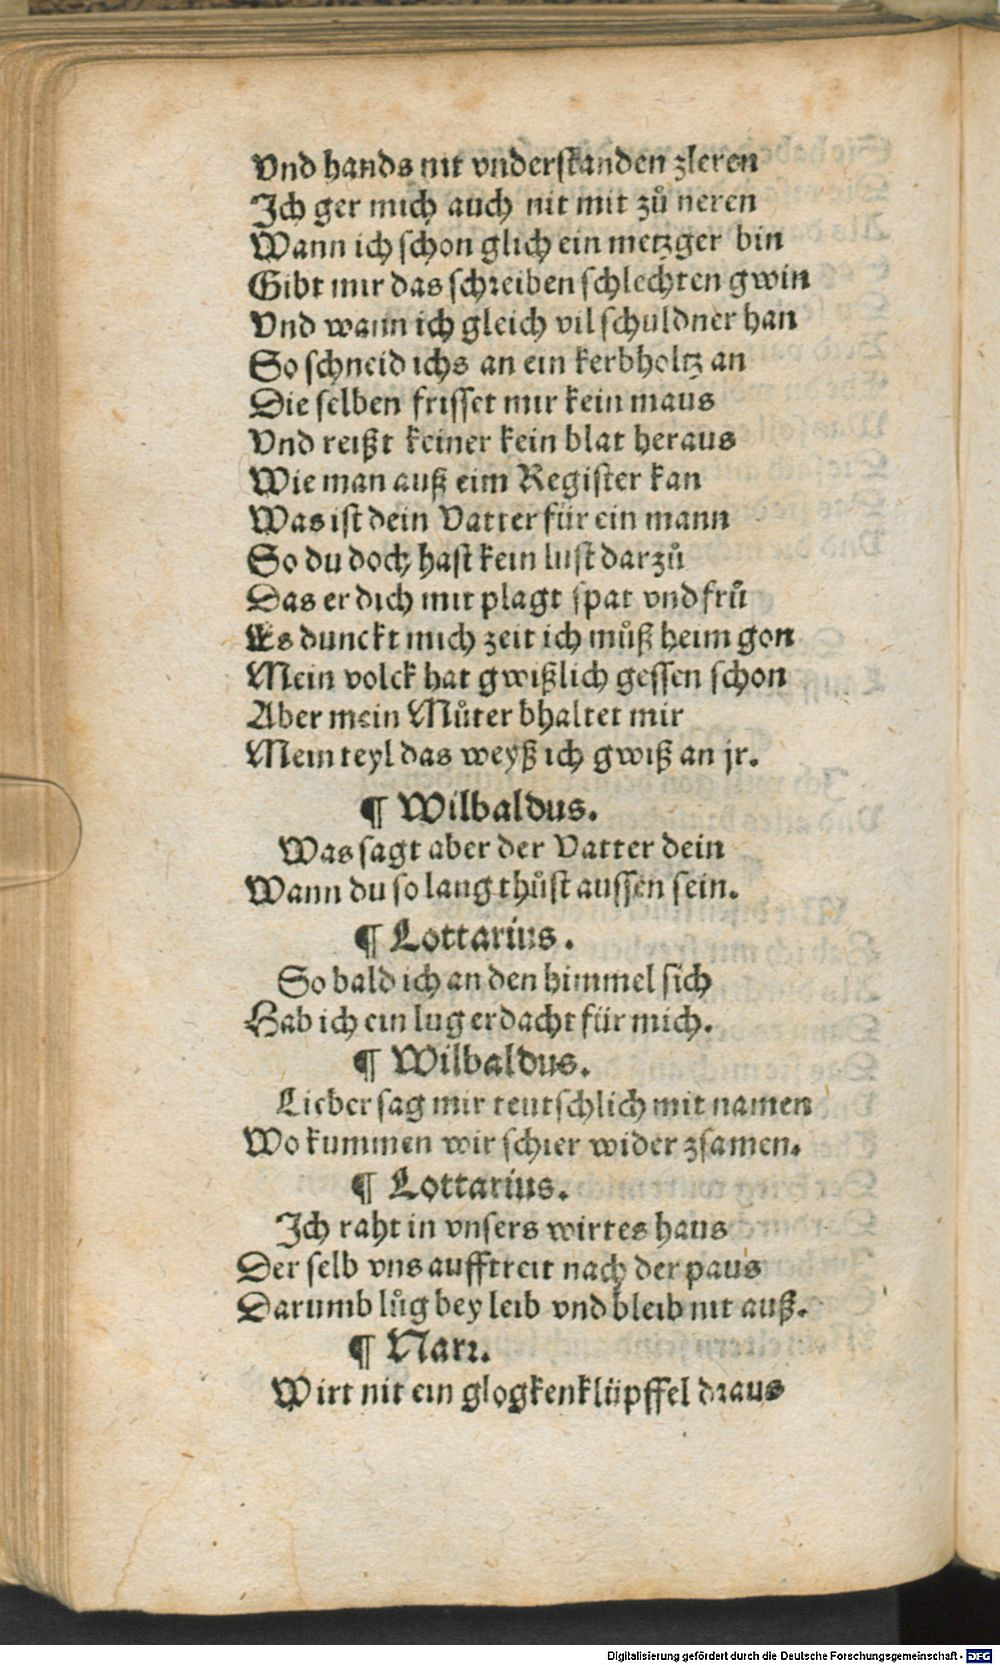 Vnd hands nit vnderstanden zleren
Ich ger mich auch nit mit zů neren
Wann ich schon glich ein metzger bin
Gibt mir das schreiben schlechten gwin
Vnd wann ich gleich vil schuldner han
So schneid ichs an ein kerbholtz an
Die selben frisset mir kein maus
Vnd reißt keiner kein blat heraus
Wie man auß eim Register kan
Was ist dein Vatter für ein mann
So du doch hast kein lust darzů
Das er dich mit plagt spat vnd frů
Es dunckt mich zeit ich můß heim gon
Mein volck hat gwißlich gessen schon
Aber mein Můter bhaltet mir
Mein teyl das weyß ich gwiß an jr.
¶ Wilbaldus.
Was sagt aber der Vatter dein
Wann du so lang thůst aussen sein.
¶ Lottarius.
So bald ich an den himmel sich
Hab ich ein lug erdacht für mich.
¶ Wilbaldus.
Lieber sag mir teutschlich mit namen
Wo kummen wir schier wider zsamen.
¶ Lottarius.
Ich raht in vnsers wirtes haus
Der selb vns aufftreit nach der paus
Darumb lůg bey leib vnd bleib nit auß.
¶ Narr.
Wirt nit ein glogkenklüpffel draus
Digitalisierung gefördert durch die Deutsche Forschungsgemeinschaft - DFG